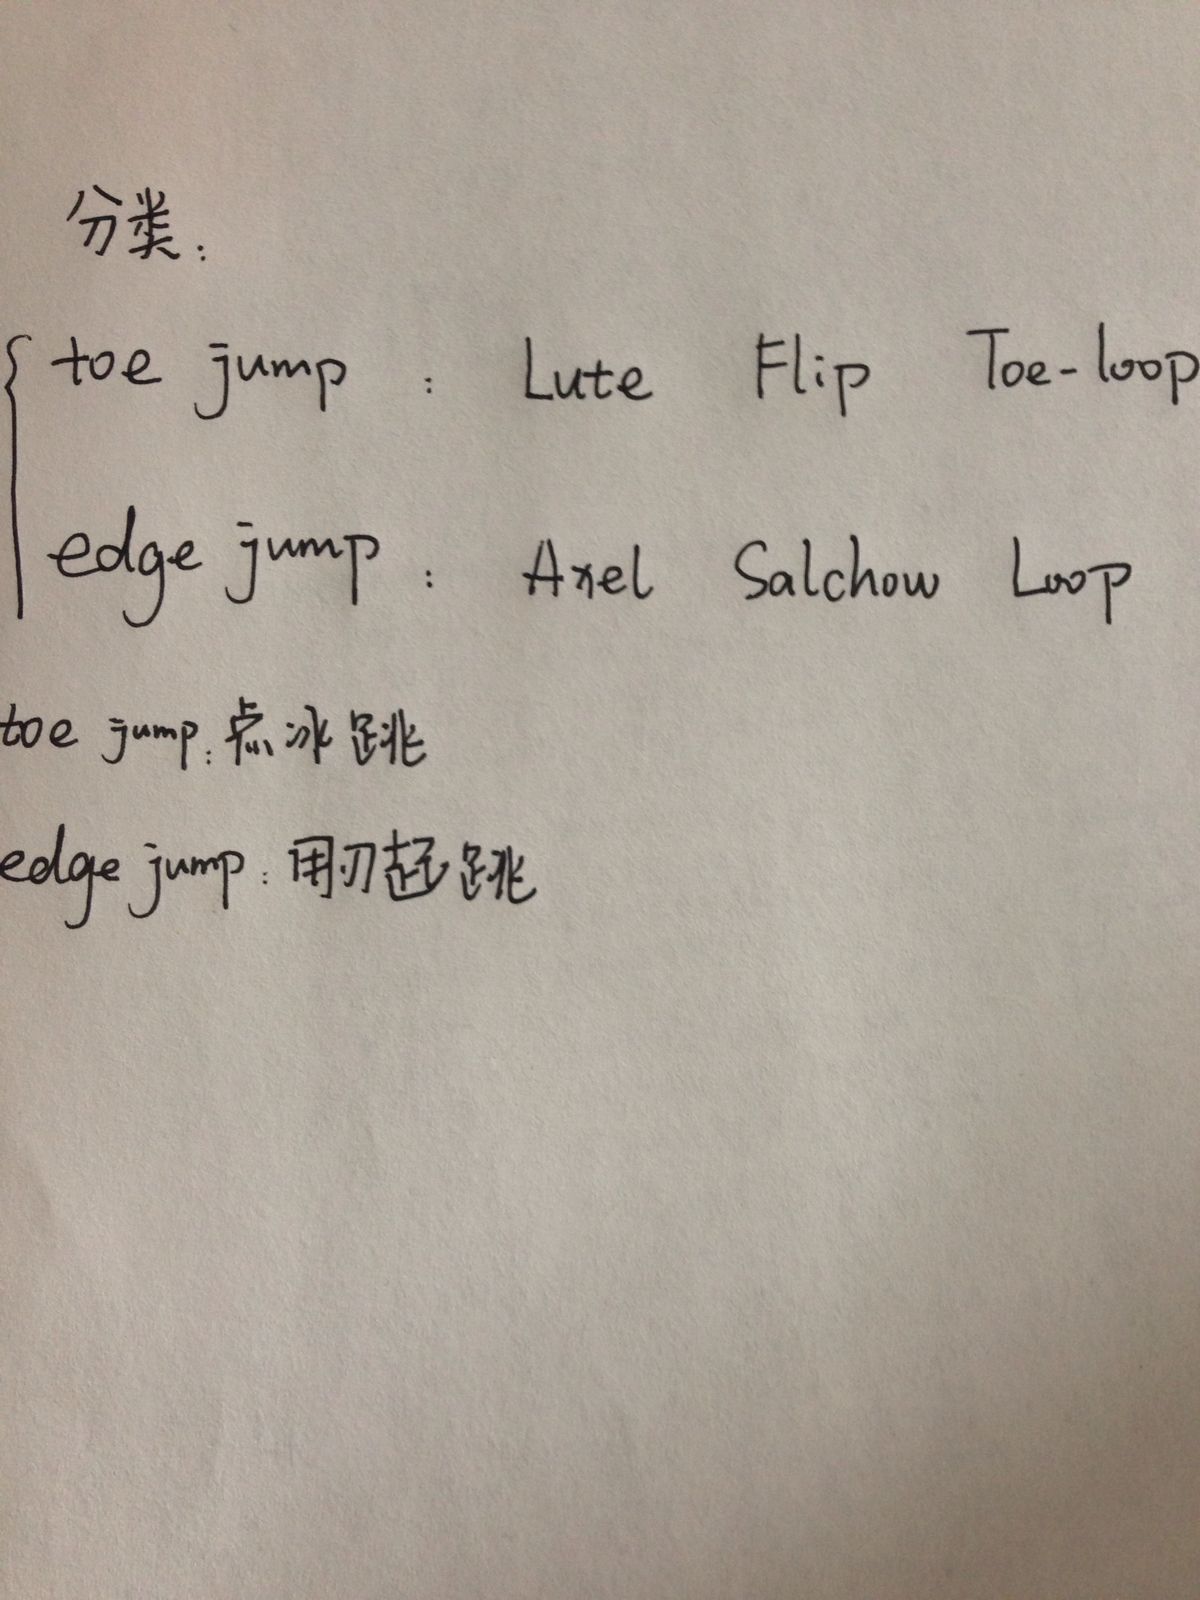 分类:
toe jump : Lute Flip Toe-loop
edge jump : Axel Salchow Loop
toe jump: 点冰跳
edge jump: 用刃起跳